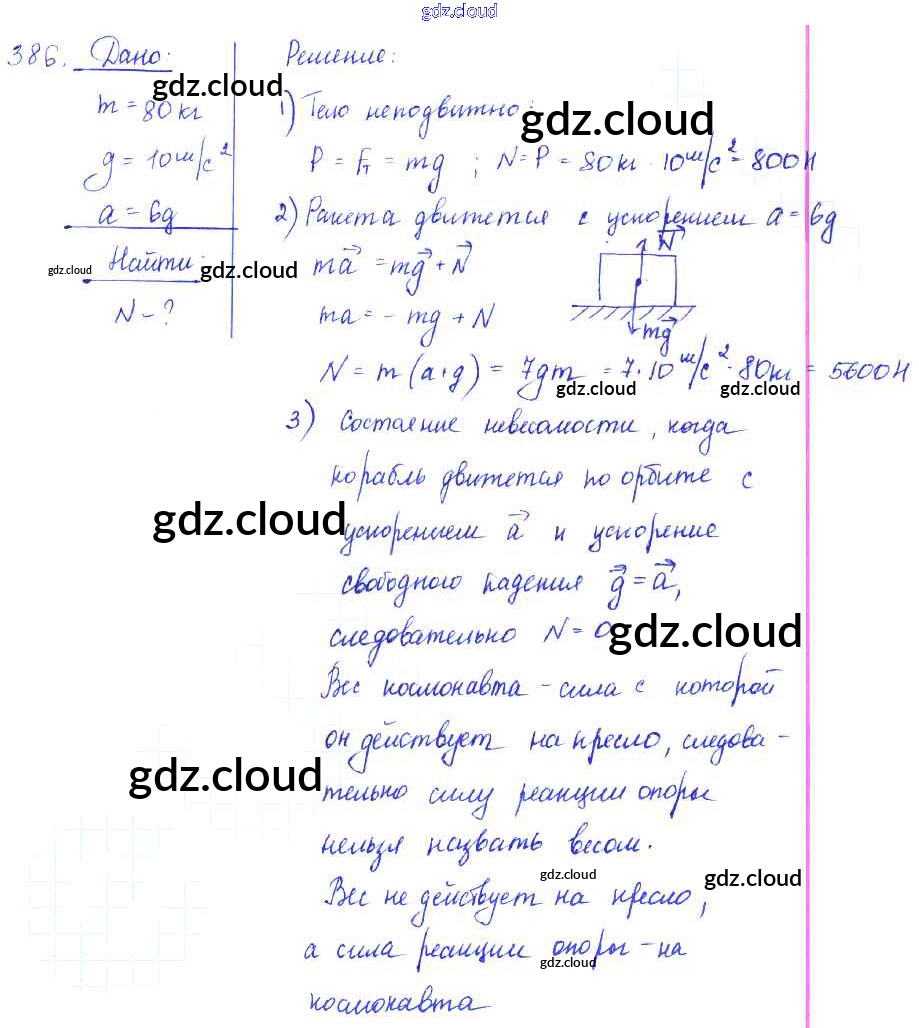 gdz.cloud
386. Дано:
m = 80 кг
g = 10 м/с²
a = 6g
Найти:
N - ?
Решение:
1) Тело неподвижно:
P = Fт = mg ; N = P = 80 кг · 10 м/с² = 800 Н
2) Ракета движется с ускорением a = 6g
ma = mg + N
ma = - mg + N
N
mg
N = m (a+g) = 7gm = 7·10 м/с² · 80 кг = 5600 Н
3) Состояние невесомости, когда
корабль движется по орбите с
ускорением a и ускорение
свободного падения g = a,
следовательно N = 0
Вес космонавта - сила с которой
он действует на кресло, следова-
тельно силу реакции опоры
нельзя назвать весом.
Вес не действует на кресло,
а сила реакции опоры - на
космонавта
gdz.cloud
gdz.cloud
gdz.cloud
gdz.cloud
gdz.cloud
gdz.cloud
gdz.cloud
gdz.cloud
gdz.cloud
gdz.cloud
gdz.cloud
gdz.cloud